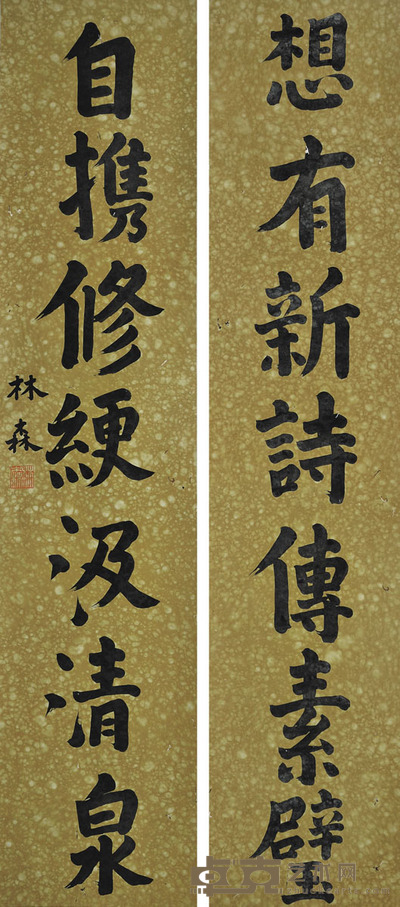 想有新詩傳素壁
自携修綆汲清泉
林森